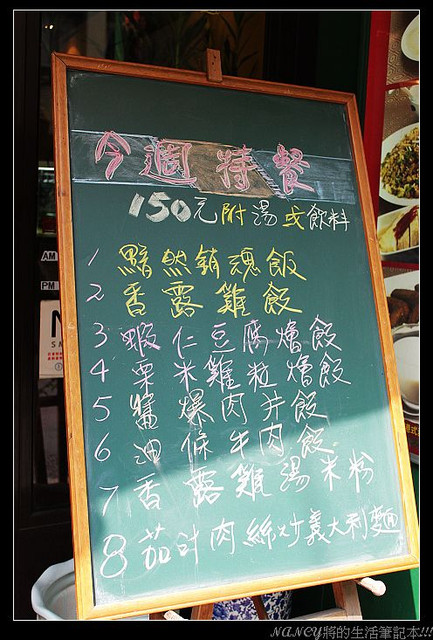 今週特餐
150元附湯或飲料
1 黯然銷魂飯
2 香露雞飯
3 蝦仁豆腐燴飯
4 栗米雞粒燴飯
5 醬爆肉丼飯
6 油條牛肉飯
7 香露雞湯米粉
8 茄汁肉絲炒義大利麵
AM
PM
NANCY將的生活筆記本!!!